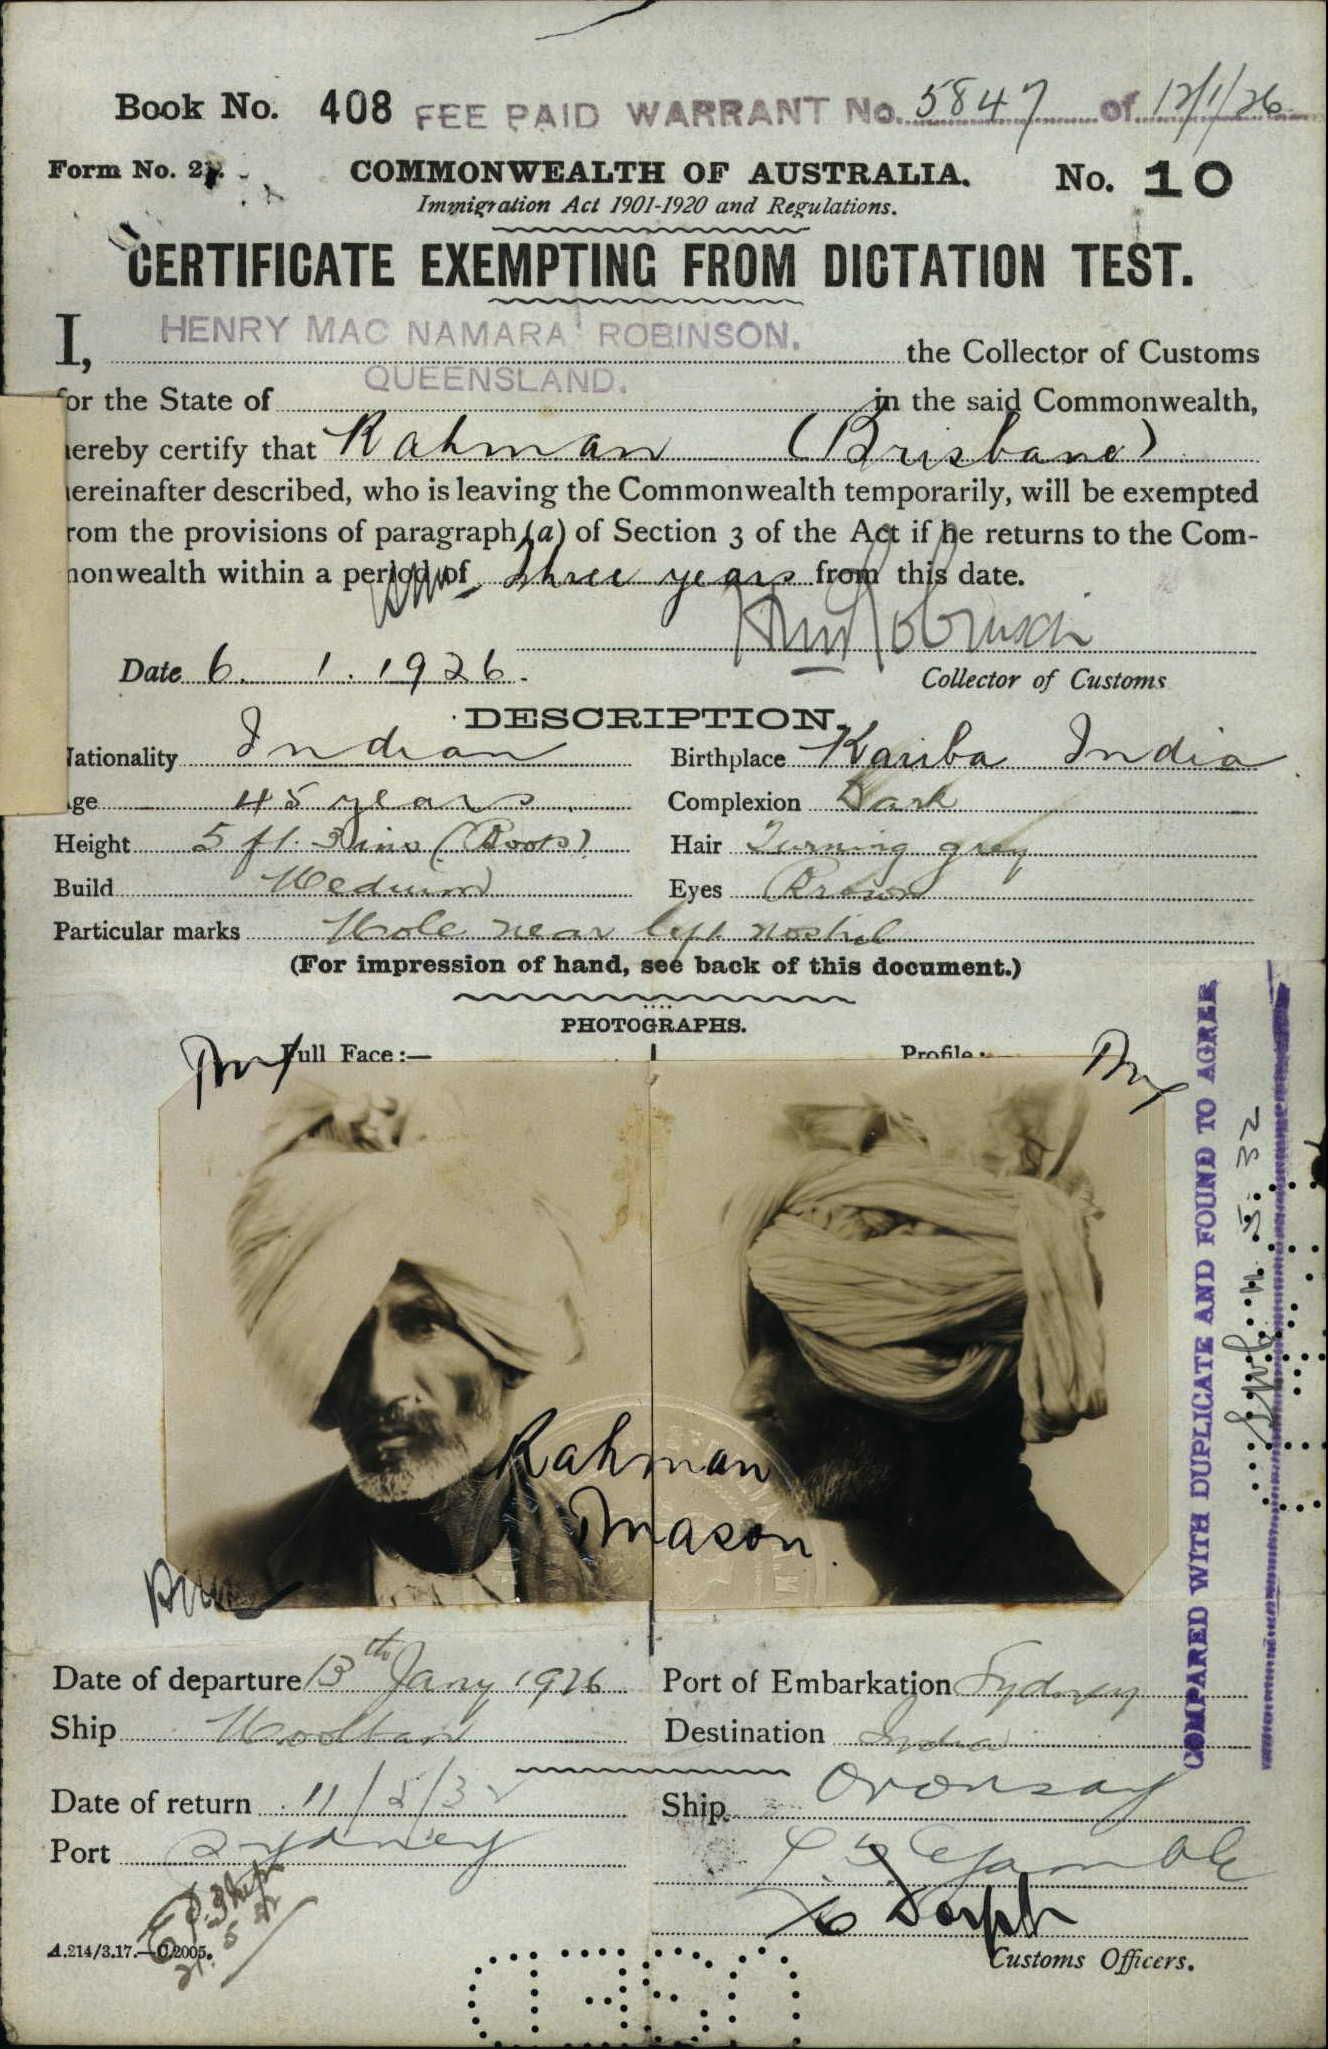 Book No. 408 FEE PAID WARRANT No. 5847 of 12/1/26
Form No. 21.
COMMONWEALTH OF AUSTRALIA. No. 10
Immigration Act 1901-1920 and Regulations.
CERTIFICATE EXEMPTING FROM DICTATION TEST.
I, HENRY MAC NAMARA ROBINSON, the Collector of Customs
for the State of QUEENSLAND. in the said Commonwealth,
hereby certify that Rahman (Brisbane)
hereinafter described, who is leaving the Commonwealth temporarily, will be exempted
from the provisions of paragraph (a) of Section 3 of the Act if he returns to the Com-
monwealth within a period of three years from this date.
Date 6. 1. 1926.
Collector of Customs
DESCRIPTION.
Nationality Indian Birthplace Kariba India
Age 45 years Complexion Dark
Height 5 ft. 3 ins (Boots) Hair Turning grey
Build Medium Eyes Brown
Particular marks Mole near left nostril
(For impression of hand, see back of this document.)
PHOTOGRAPHS.
Full Face:— Profile:—
Rahman
Mason.
COMPARED WITH DUPLICATE AND FOUND TO AGREE
11. 5. 32
Date of departure 13th Jany 1926 Port of Embarkation Sydney
Ship Mooltan Destination India
Date of return 11/5/32 Ship Oronsay
Port Sydney
Customs Officers.
A.214/3.17.—C.2005.